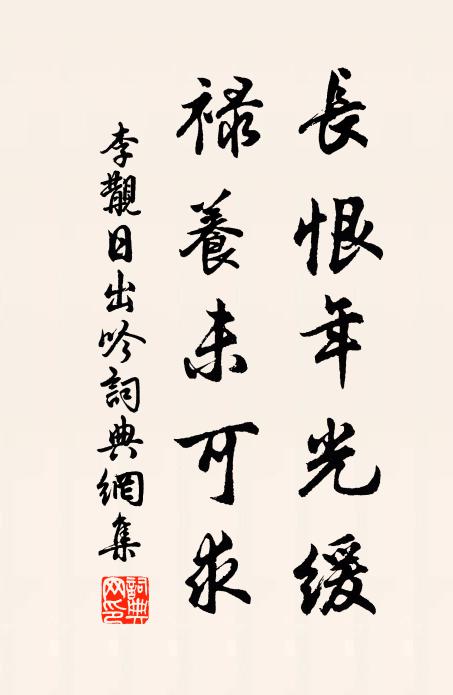 長恨年光緩
禄養未可求
李觀日出吟詞典網集
詞典网印